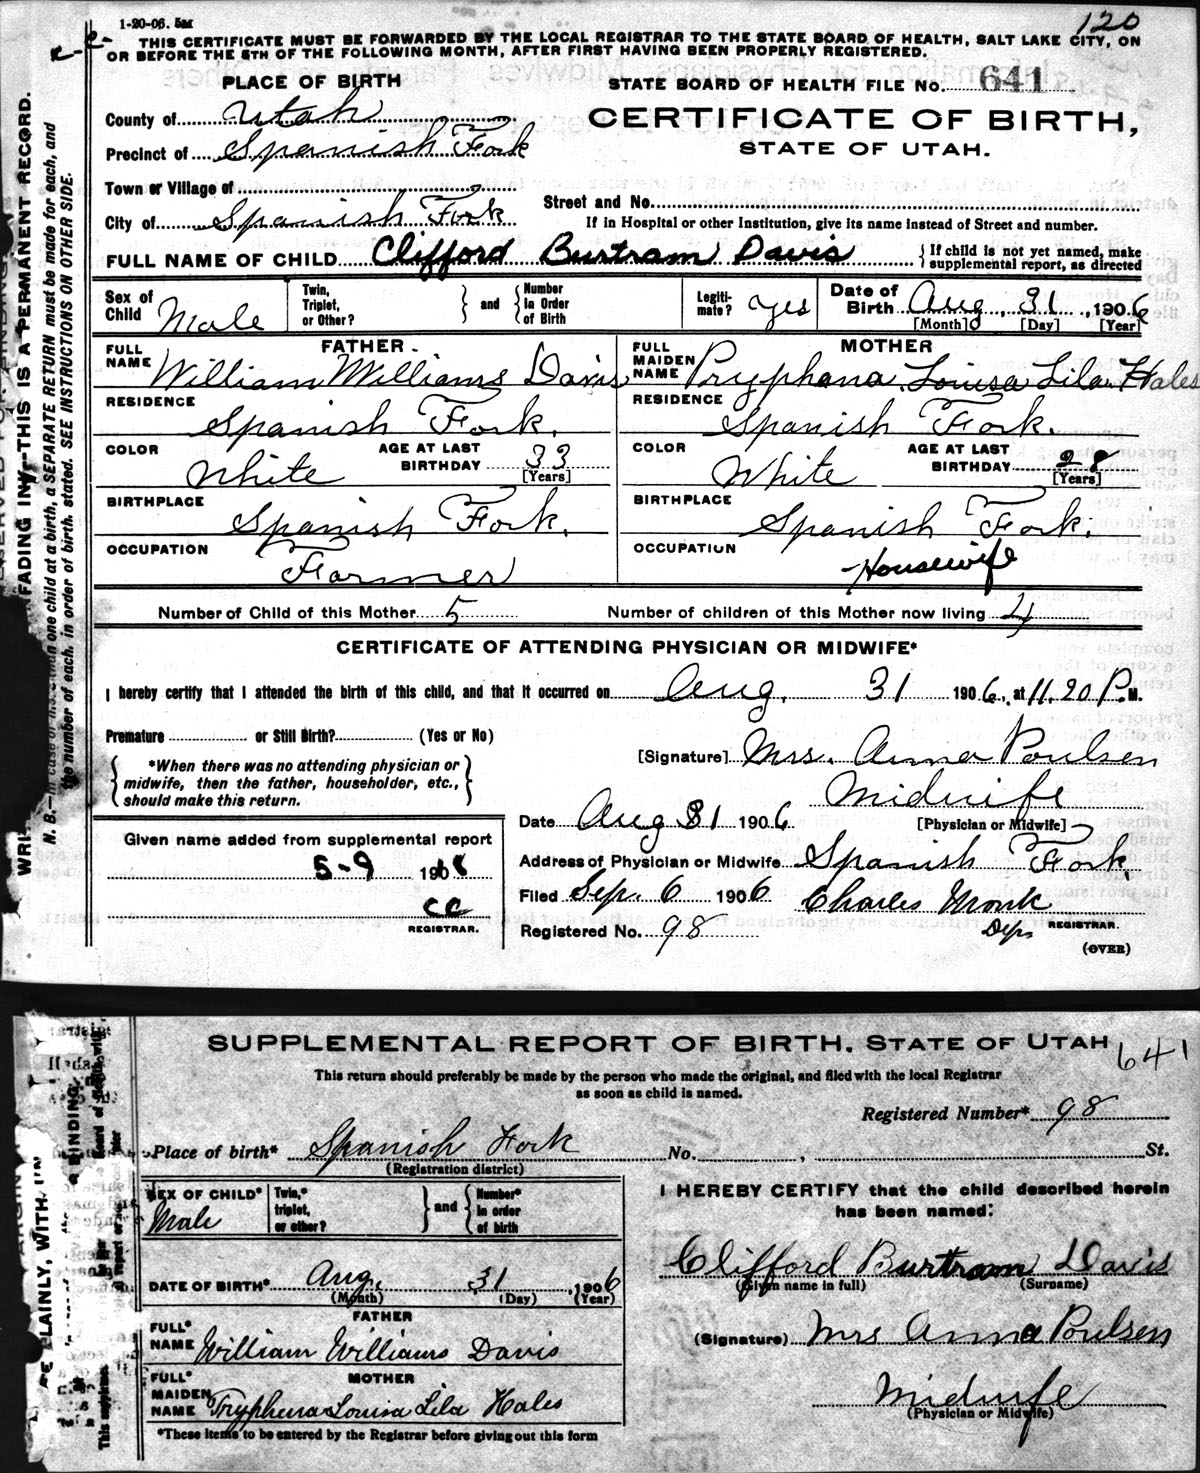 1-20-06. 5M
120
THIS CERTIFICATE MUST BE FORWARDED BY THE LOCAL REGISTRAR TO THE STATE BOARD OF HEALTH, SALT LAKE CITY, ON
OR BEFORE THE 5TH OF THE FOLLOWING MONTH, AFTER FIRST HAVING BEEN PROPERLY REGISTERED.
PLACE OF BIRTH
STATE BOARD OF HEALTH FILE No. 641
County of Utah
CERTIFICATE OF BIRTH,
Precinct of Spanish Fork
STATE OF UTAH.
Town or Village of
Street and No.
City of Spanish Fork
If in Hospital or other Institution, give its name instead of Street and number.
FULL NAME OF CHILD Clifford Burtram Davis { If child is not yet named, make supplemental report, as directed
Sex of Child Male Twin, Triplet, or Other? } and { Number in Order of Birth Legiti-mate? Yes Date of Birth Aug. 31, 1906
[Month] [Day] [Year]
FATHER.
MOTHER
FULL NAME William Williams Davis
FULL MAIDEN NAME Pryphena Louisa Lila Hales
RESIDENCE Spanish Fork.
RESIDENCE Spanish Fork.
COLOR White AGE AT LAST BIRTHDAY 33 [Years]
COLOR White AGE AT LAST BIRTHDAY 28 [Years]
BIRTHPLACE Spanish Fork.
BIRTHPLACE Spanish Fork.
OCCUPATION Farmer
OCCUPATION Housewife
Number of Child of this Mother 5 Number of children of this Mother now living 4
CERTIFICATE OF ATTENDING PHYSICIAN OR MIDWIFE*
I hereby certify that I attended the birth of this child, and that it occurred on Aug. 31 1906, at 11.20 P.M.
Premature or Still Birth? (Yes or No)
[Signature] Mrs. Anna Poulsen
*When there was no attending physician or
midwife, then the father, householder, etc.,
should make this return.
Midwife
[Physician or Midwife]
Date Aug 31 1906
Given name added from supplemental report
5-9 1908
CC
REGISTRAR.
Address of Physician or Midwife Spanish Fork.
Filed Sep. 6 1906 Charles Monk
Registered No. 98 Dep. REGISTRAR.
(OVER)
THIS IS A PERMANENT RECORD.
one child at a birth, a SEPARATE RETURN must be made for each, and
the number of each, in order of birth, stated. SEE INSTRUCTIONS ON OTHER SIDE.
SUPPLEMENTAL REPORT OF BIRTH. STATE OF UTAH 641
This return should preferably be made by the person who made the original, and filed with the local Registrar
as soon as child is named.
Registered Number* 98
Place of birth* Spanish Fork No. , St.
(Registration district)
SEX OF CHILD* Male Twin,* triplet, or other? } and { Number* in order of birth
I HEREBY CERTIFY that the child described herein
has been named:
DATE OF BIRTH* Aug. 31, 1906
(Month) (Day) (Year)
Clifford Burtram Davis
(Given name in full) (Surname)
FATHER
FULL* NAME William Williams Davis
(Signature) Mrs Anna Poulsen
MOTHER
FULL* MAIDEN NAME Tryphena Louisa Lila Hales
Midwife
(Physician or Midwife)
*These items to be entered by the Registrar before giving out this form